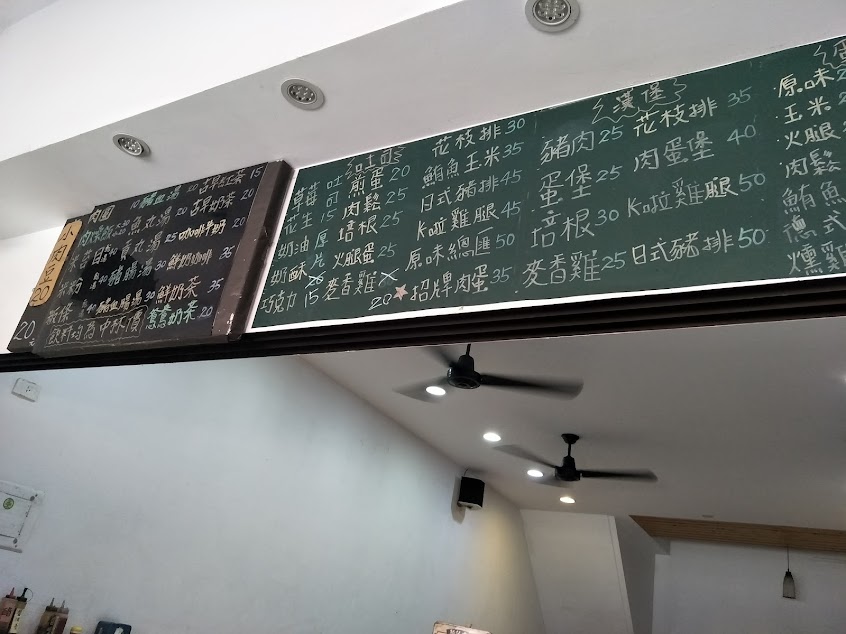 小肉豆
20
20元
肉圓
豬血湯 20
魚丸湯 20
豬腸湯 30
豬血腸湯 30
飲料均為中杯價
古早紅茶 15
古早奶茶 20
鮮奶咖啡 35
鮮奶茶 35
鴛鴦奶茶 20
吐司
草莓
花生 15
奶油
奶酥 20
巧克力 15
吐司厚片
煎蛋 20
肉鬆 20
培根 25
火腿蛋 25
麥香雞
20
花枝排 30
鮪魚玉米 35
日式豬排 45
K啦雞腿 45
原味總匯 50
招牌肉蛋 35
漢堡
豬肉 25
蛋堡 25
培根 30
麥香雞 25
花枝排 35
肉蛋堡 40
K啦雞腿 50
日式豬排 50
蛋
原味
玉米
火腿
肉鬆
鮪魚
德式
燻雞